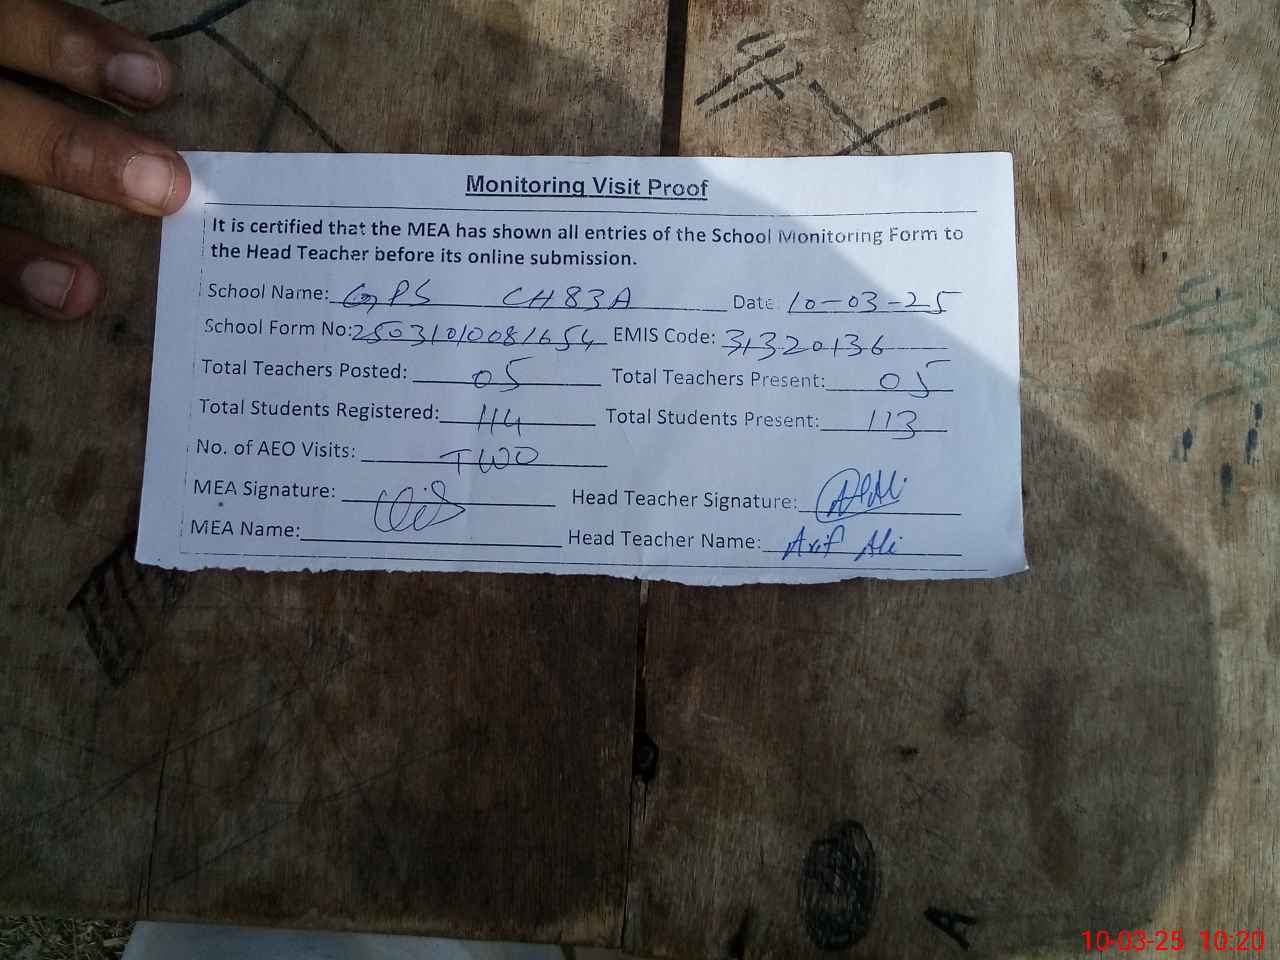 Monitoring Visit Proof
It is certified that the MEA has shown all entries of the School Monitoring Form to
the Head Teacher before its online submission.
School Name: GPS CH83A Date: 10-03-25
School Form No: 25031010081654 EMIS Code: 31320136
Total Teachers Posted: 05 Total Teachers Present: 05
Total Students Registered: 114 Total Students Present: 113
No. of AEO Visits: TWO
MEA Signature: Head Teacher Signature:
MEA Name: Head Teacher Name: Arif Ali
A
10-03-25 10:20